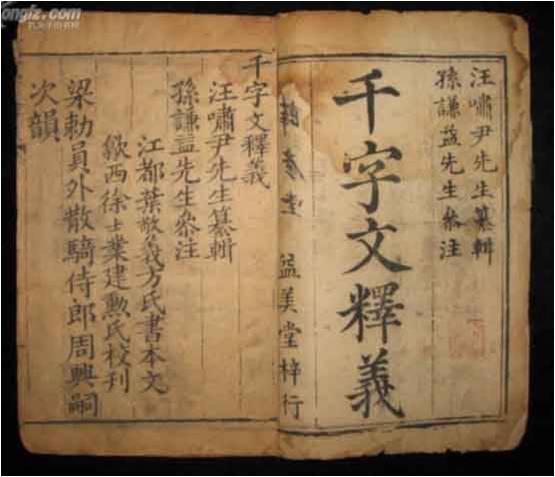 汪嘯尹先生纂輯
孫謙益先生叅注
千字文釋義
益美堂梓行
千字文釋義
汪嘯尹先生纂輯
孫謙益先生叅注
江都葉敬義方氏書本文
歙西徐士業建勲氏校刊
梁勅員外散騎侍郎周興嗣
次韻